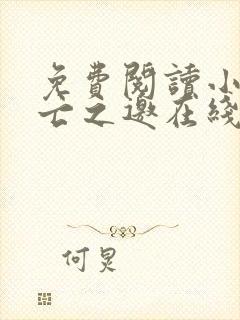 免費閱讀小
亡之邀在綫
何炅